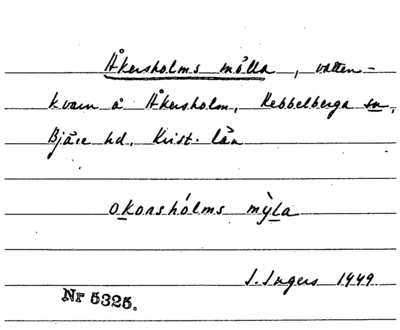 Åkersholms mölla, vatten-
kvarn å Åkersholm, Rebbelberga sn,
Bjäre hd, Krist. län
okorshólms mỳla
I. Ingers 1949
Nr 5325.